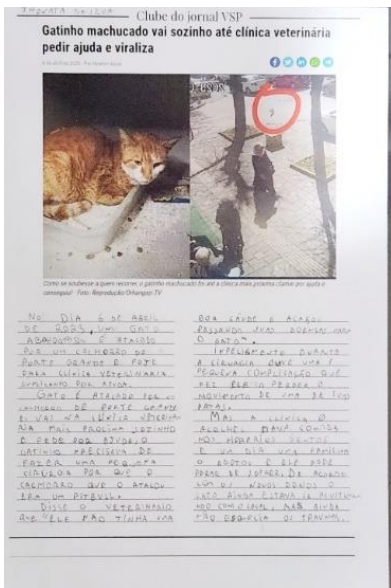 Clube do jornal VSP
Gatinho machucado vai sozinho até clínica veterinária
pedir ajuda e viraliza
Como se soubesse a quem recorrer, o gatinho machucado foi até a clínica mais próxima clamar por ajuda e
conseguiu! - Foto: Reprodução/Orhangazi TV
NO DIA 6 DE ABRIL
DE 2023, UM GATO
ABANDONADO É ATACADO
POR UM CACHORRO DE
PORTE GRANDE E FOGE
PARA CLÍNICA VETERINARIA
SUPLICANDO POR AJUDA.
GATO É ATACADO POR
CACHORRO DE PORTE GRANDE
E VAI NA CLÍNICA VETERINA
NA MAIS PROCIMA SOZINHO
E PEDE POR AJUDA, O
GATINHO PRECISAVA DE
FAZER UMA PEQUENA
CIRURGIA POR QUE O
CACHORRO QUE O ATACOU
ERA UM PITBULL.
DISSE O VETERINARIO
QUE "ELE NÃO TINHA UMA
BOA SAÚDE E ACABOU
PASSANDO SUAS DOENSAS PARA
O GATO".
INFELISMENTE DURANTE
A CIRURGIA OUVE UMA
PEQUENA COMPLICAÇÃO QUE
FEZ ELE PERDER O
MOVIMENTO DE UMA DE SUAS
PATAS.
MAS A CLÍNICA O
ACOLHEU, DAVA COMIDA
NOS HORARIOS CERTOS
E UM DIA UMA FAMILIA
O ADOTOU E ELE PODE
PARAR DE SOFRER, DE ACORDO
COM OS NOVOS DONOS O
GATO AINDA ESTAVA SE
COM O LOCAL, MAS AINDA
NÃO ESQUECIA OS TRAUMAS.